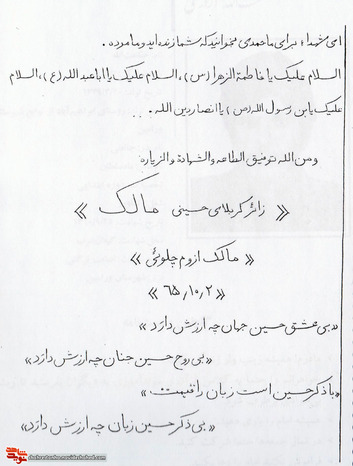 ای شهدا؛ برای ما حمدی بخوانید که شما زنده اید و ما مرده.
السلام علیک یا فاطمة الزهرا (س)، السلام علیک یا ابا عبد الله (ع)، السلام
علیک یا بن رسول الله (ص) یا انصار دین الله.
و من الله توفیق الطاعه و الشهادة و الزیاره
« زائر کربلای حسینی مالک »
« مالک ازوم چلوئی »
« ۶۵/۱۰/۲ »
«بی عشق حسین جهان چه ارزش دارد»
«بی روح حسین جنان چه ارزش دارد»
«با ذکر حسین است زبان را قیمت»
«بی ذکر حسین زبان چه ارزش دارد»